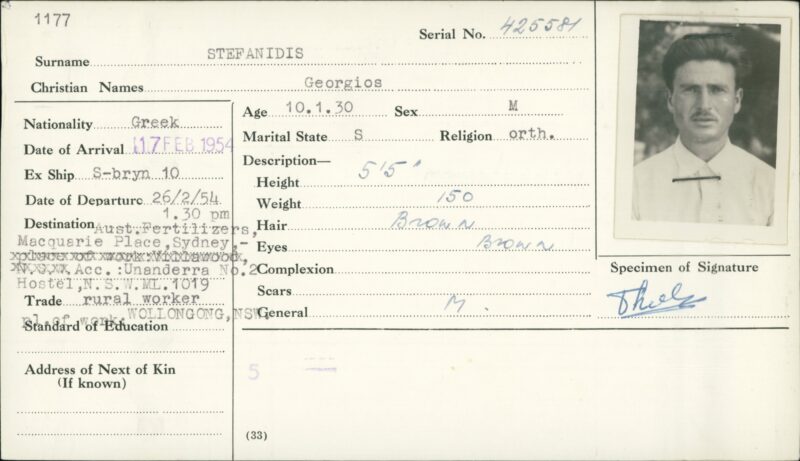 1177
Serial No. 425581
Surname STEFANIDIS
Christian Names Georgios
Nationality Greek
Date of Arrival 17 FEB 1954
Ex Ship S-bryn 10
Date of Departure 26/2/54
1.30 pm
Destination Aust.Fertilizers,
Macquarie Place,Sydney,-
place of work Villawood,
N.S.W. Acc.:Unanderra No.2
Hostel,N.S.W.ML.1019
Trade rural worker
pl.of work:WOLLONGONG,NSW.
Standard of Education
Address of Next of Kin
(If known)
Age 10.1.30 Sex M
Marital State S Religion orth.
Description—
Height 5'5"
Weight 150
Hair Brown
Eyes Brown
Complexion
Scars
General M.
5
(33)
Specimen of Signature